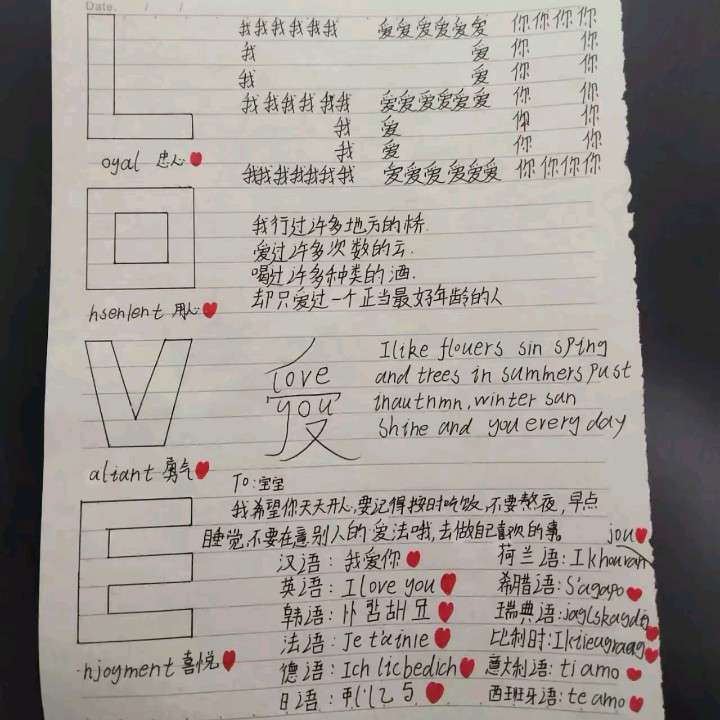 Date. / /
我我我我我我 爱爱爱爱爱爱 你你你你
我 爱 你 你
我 爱 你 你
我我我我我我 爱爱爱爱爱爱 你 你
我 爱 你 你
我 爱 你 你
我我我我我我 爱爱爱爱爱爱 你你你你
L
oyal 忠心
我行过许多地方的桥.
爱过许多次数的云.
喝过许多种类的酒.
却只爱过一个正当最好年龄的人
O
hsenlent 用心
V
aliant 勇气
love
you
I like flouers sin sping
and trees in summers pust
inautnmn, winter san
shine and you every day
To:宝宝
我希望你天天开心,要记得按时吃饭,不要熬夜,早点
睡觉,不要在意别人的爱法哦,去做自己喜欢的事
E
njoyment 喜悦
汉语:我爱你
英语:I love you
韩语:
法语:Je tainle
德语:Ich licbedich
日语:
jou
荷兰语:Ikhouvan
希腊语:S'agapo
瑞典语:jaglskaydig
比利时:Ikiieugraag
意大利语:ti amo
西班牙语:te amo